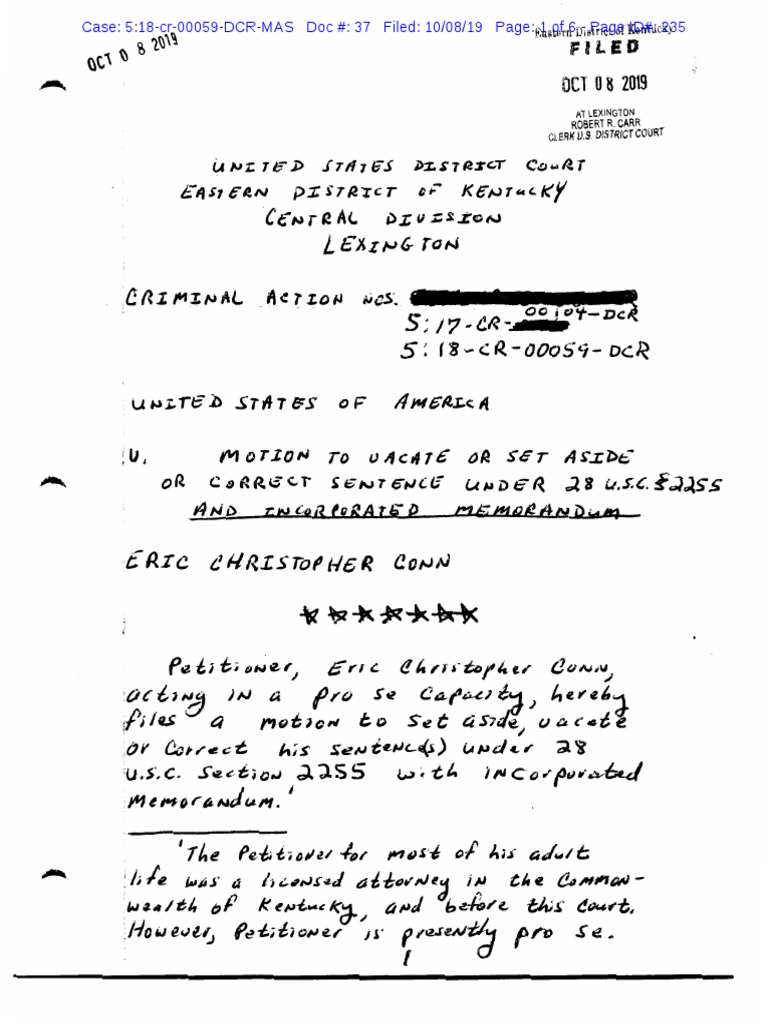 Case: 5:18-cr-00059-DCR-MAS Doc #: 37 Filed: 10/08/19 Page: 1 of 6 - Page ID#: 235
OCT 08 2019
Eastern District of Kentucky
FILED
OCT 08 2019
AT LEXINGTON
ROBERT R. CARR
CLERK U.S. DISTRICT COURT
UNITED STATES DISTRICT COURT
EASTERN DISTRICT OF KENTUCKY
CENTRAL DIVISION
LEXINGTON
CRIMINAL ACTION NOS.
5:17-CR-00104-DCR
5:18-CR-00059-DCR
UNITED STATES OF AMERICA
V. MOTION TO VACATE OR SET ASIDE
OR CORRECT SENTENCE UNDER 28 U.S.C. §2255
AND INCORPORATED MEMORANDUM
ERIC CHRISTOPHER CONN
Petitioner, Eric Christopher Conn,
acting in a pro se capacity, hereby
files a motion to set aside, vacate
or correct his sentence(s) under 28
U.S.C. Section 2255 with incorporated
Memorandum.¹
¹The Petitioner for most of his adult
life was a licensed attorney in the Common-
wealth of Kentucky, and before this Court.
However, Petitioner is presently pro se.
1